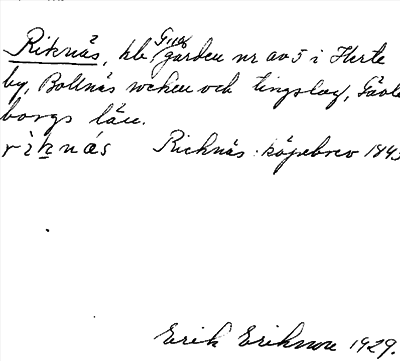 Riknäs, hb. gården nr av 5 i Herte
by, Bollnäs socken och tingslag, Gävle
borgs län.
riknäs Ricknäs: köpebrev 1843
Erik Eriksson 1929.